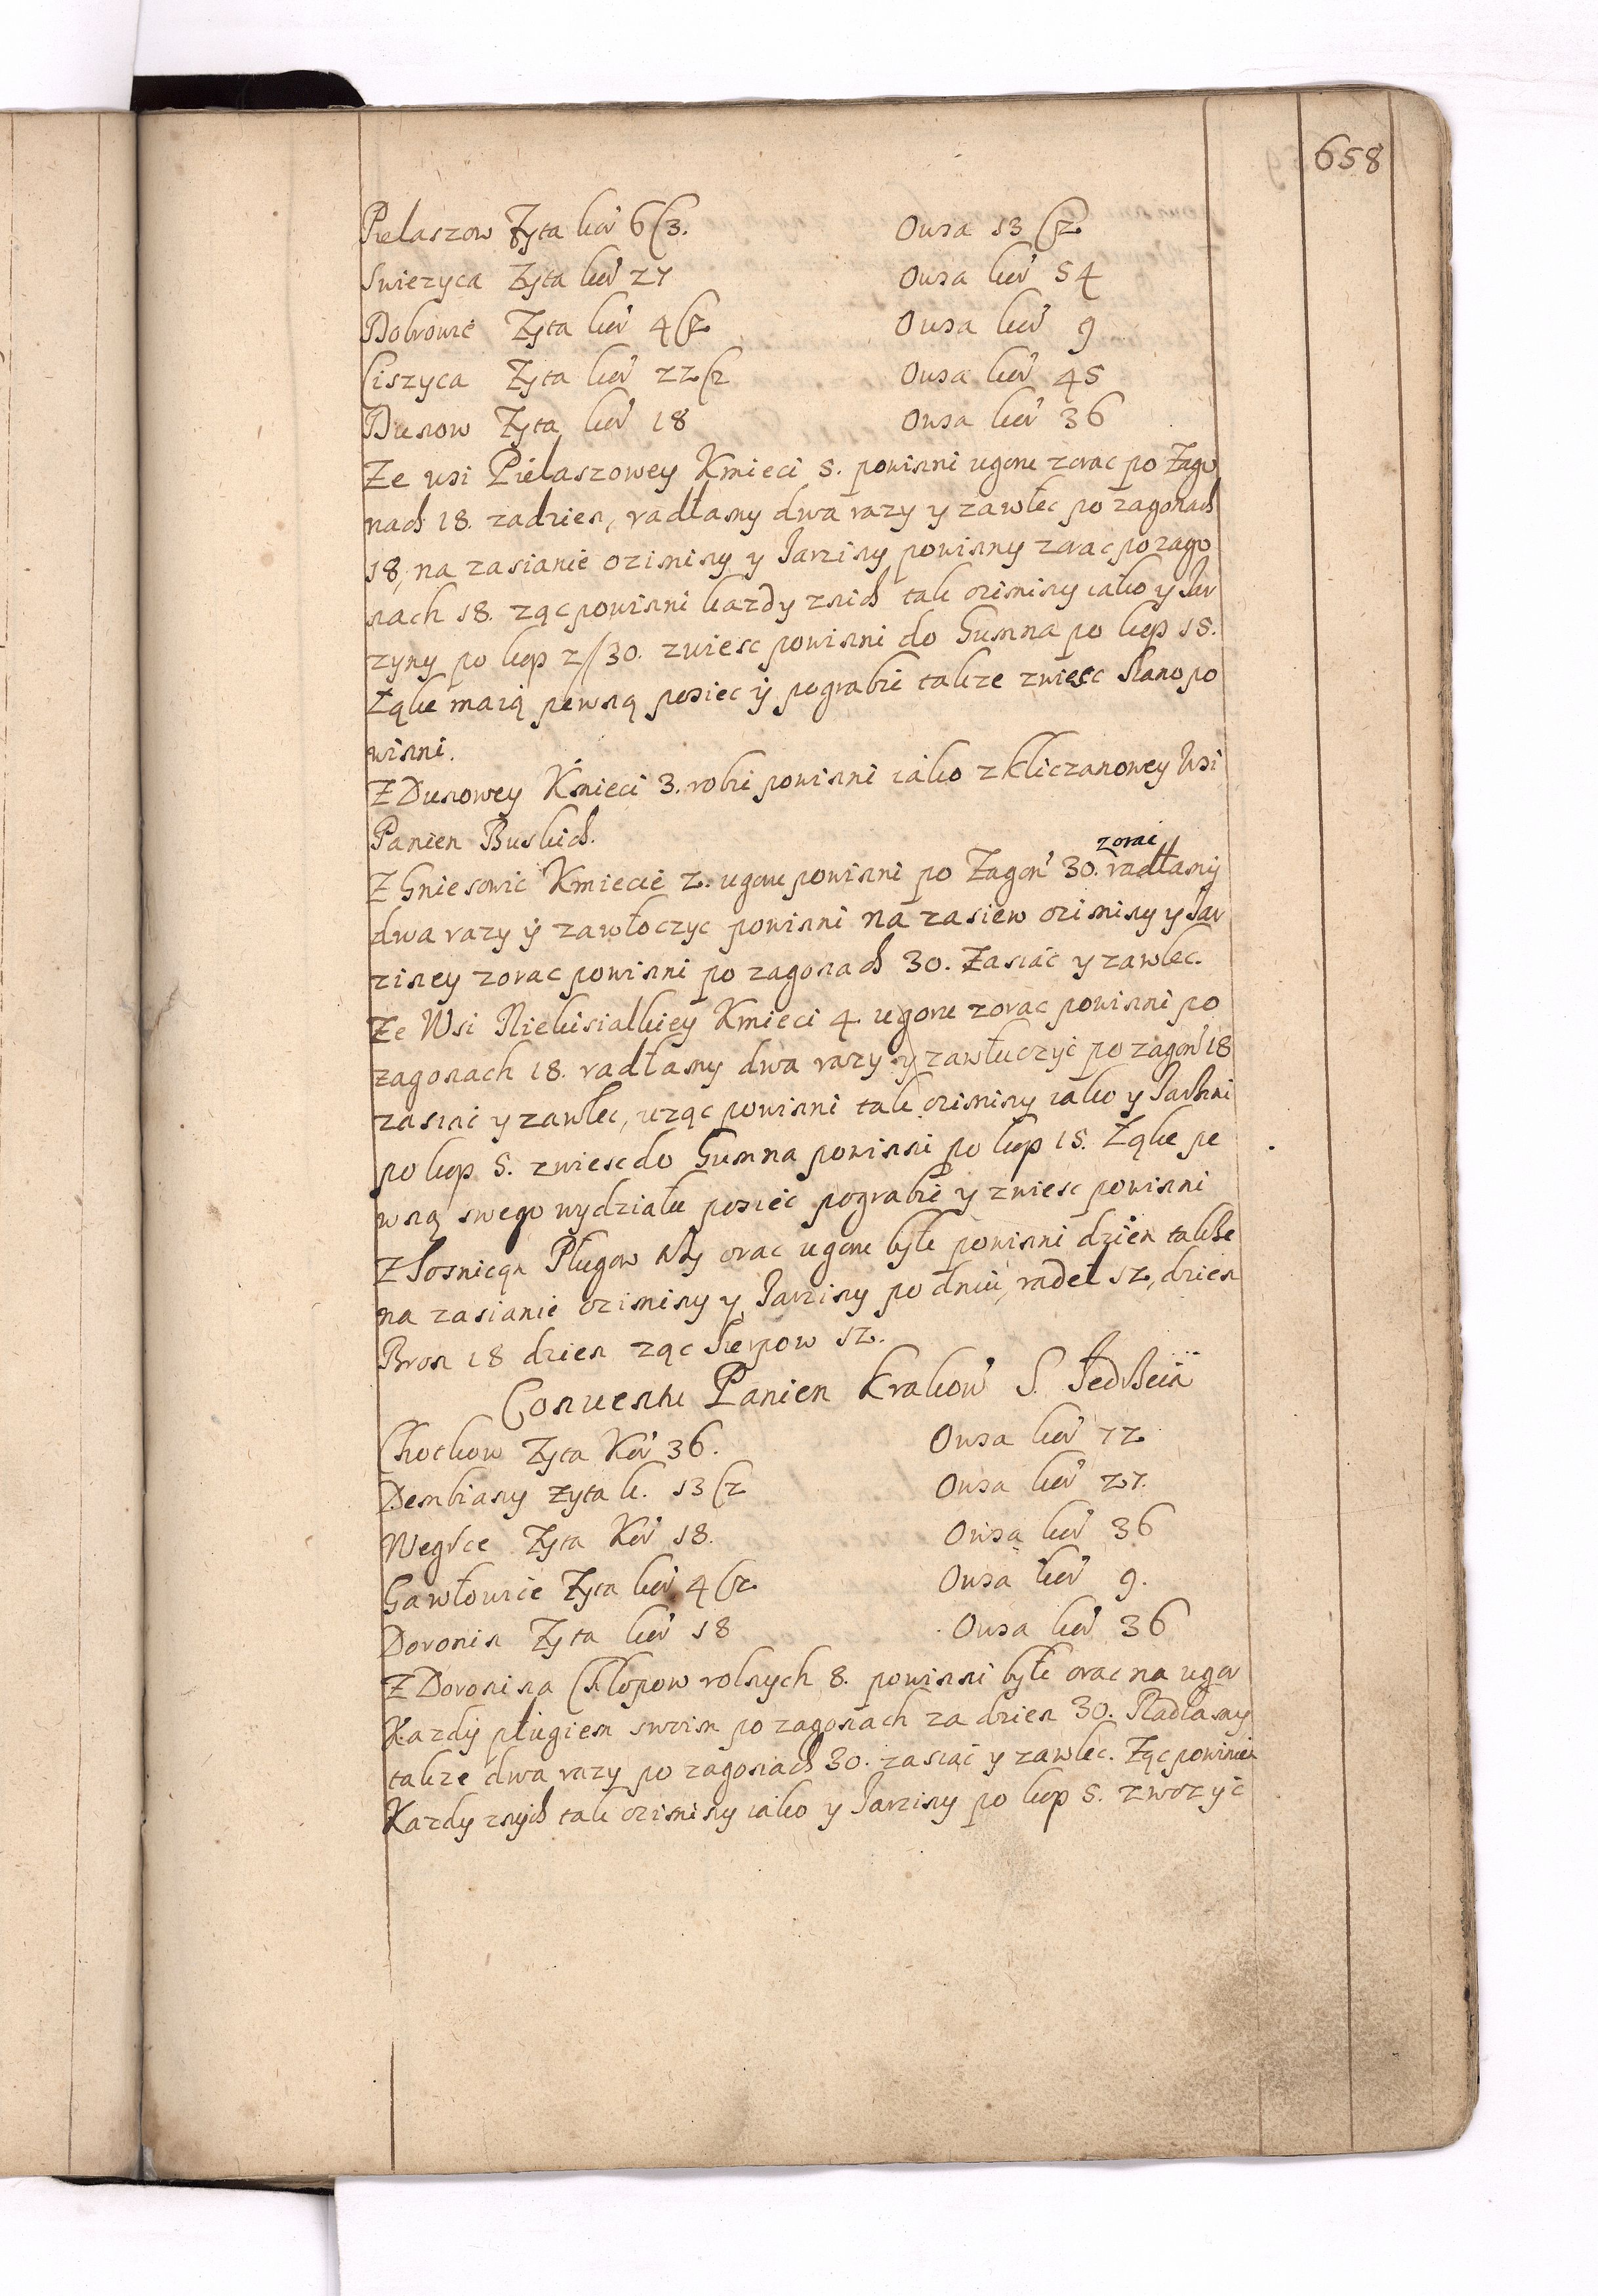 658
Pielaszow Zyta kor 6 ʃ3. Owsa 13 ʃ2
Swiezyca Zyta kor 27 Owsa kor 54
Dobrowie Zyta kor 4 ʃ2 Owsa kor 9
Ciszyca Zyta kor 22 ʃ2 Owsa kor 45
Dunow Zyta kor 18 Owsa kor 36
Ze wsi Pielaszowey Kmieci 5. powinni ugoru zorac po Zago
nach 18. zadzien, radłamy dwa razy y zawlec po zagonach
18, na zasianie oziminy y Jarziny powinny zorac po zago
nach 18. ząc powinni kazdy znich tak oziminy iako y Jar
zyny po kop 2/30. zwiesc powinni do Gumna po kop 15.
Ząke maią pewną posiec ÿ pograbic takze zwiesc siano po
winni.
Z Dunowey Kmieci 3. robic powinni iako z Kliczanowey Wsi
Panien Buskich.
zorac
Z Gniesowic Kmiecie 2. ugoru powinni po Zagon 30. radłamÿ
dwa razy ÿ zawłoczyc powinni na zasiew oziminy y Jar
ziney zorac powinni po zagonach 30. Zasiac y zawlec.
Ze Wsi Niekisialkiey Kmieci 4. ugoru zorac powinni po
zagonach 18. radłamy dwa razy y zawłuczyc po zagon 18
zasiac y zawlec, uząc powinni tak oziminy iako y Jarzini
po kop 5. zwiesc do Gumna powinni po kop 15. Ząke pe
wną swego wydziału posiec pograbic y zwiesc powinni
Z Sosnicą Pługow orac ugoru było powinni dzien takze
na zasianie oziminy y Jarziny po dniu, radeł 12, dzien
Bron 18 dzien ząc Sierpow 12.
Conuentu Panien Krakow S. Jedrzeia
Chotkow Zyta Kor 36. Owsa kor 72
Dembiany zyta k. 13 ʃ2 Owsa kor 27.
Wegrce Zyta Kor 18. Owsa kor 36
Gawłowie Zyta kor 4 ʃ2. Owsa kor 9.
Doronin Zyta kor 18 Owsa kor 36
Z Doronina Chłopow rolnych 8. powinni było orac na ugor
Kazdÿ pługiem swoim po zagonach za dzien 30. Radłamy
takze dwa razy po zagonach 30. zasiac y zawlec. Ząc powinien
Kazdy znÿch tak oziminy iako y Jarziny po kop 5. zwozyc